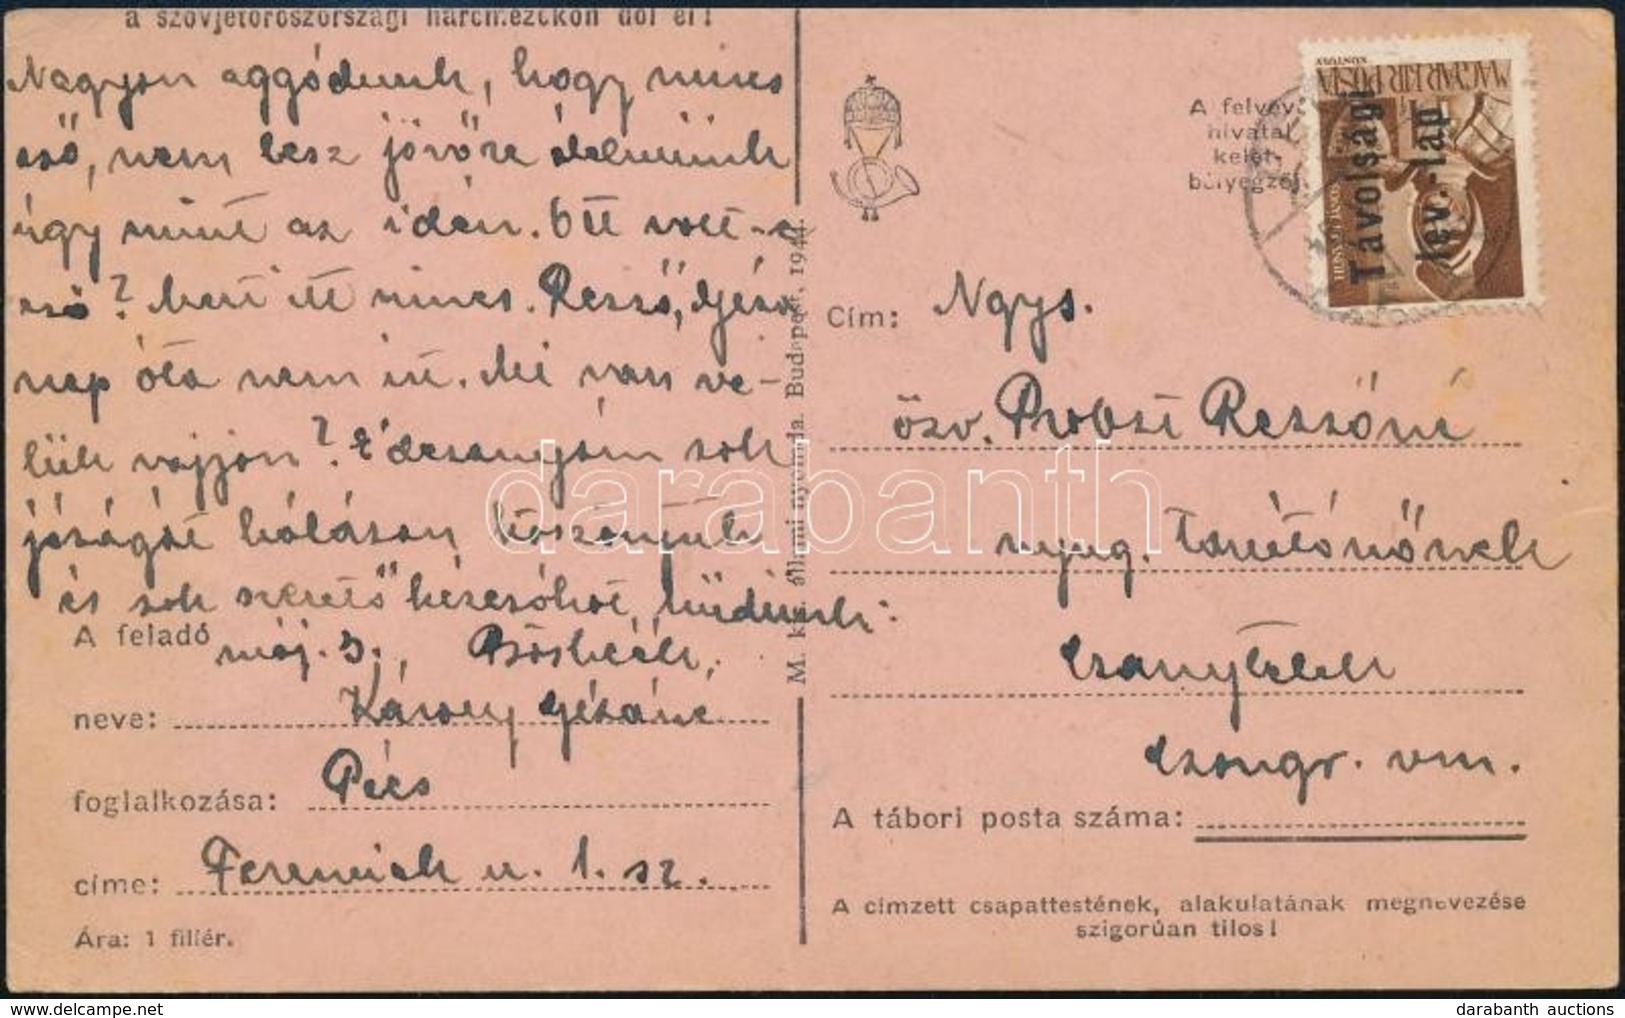 a szovjetoroszországi harcmezőkön dől el!
Nagyon aggódunk, hogy nincs
eső, nem lesz jövőre élelmünk
úgy mint az idén. Ott volt-e
eső? Mert itt nincs. Rezső, Géza
nap óta nem itt. Mi van ve-
lük vajjon? Édesanyám sok
jóságát hálásan köszönjük
és sok szerető kézcsókot küldünk:
A feladó
máj. 3.,
neve: Károly Gézáné
foglalkozása: Pécs
címe: Ferenciek u. 1. sz.
Ára: 1 fillér.
M. kir. állami nyomda. Budapest, 1944.
A felvevő
hivatal
kelet-
bélyegzője
MAGYAR KIR. POSTA
Távolsági
lev.-lap
Cím: Ngys.
özv. Probszt Rezsőné
nyug. tanítónőnek
Csanytelek
Csongr. vm.
A tábori posta száma:
A címzett csapattestének, alakulatának megnevezése
szigorúan tilos!
darabanth
darabanth auctions